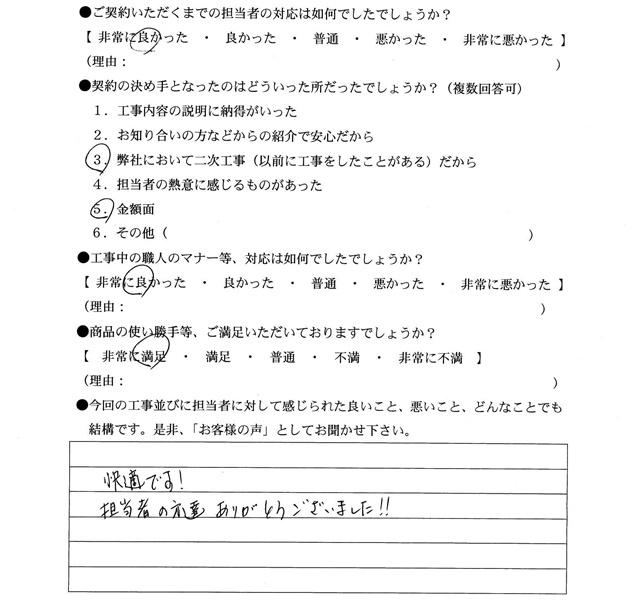 ●ご契約いただくまでの担当者の対応は如何でしたでしょうか?
【 非常に良かった ・ 良かった ・ 普通 ・ 悪かった ・ 非常に悪かった 】
(理由: )
●契約の決め手となったのはどういった所だったでしょうか?(複数回答可)
1.工事内容の説明に納得がいった
2.お知り合いの方などからの紹介で安心だから
3.弊社において二次工事(以前に工事をしたことがある)だから
4.担当者の熱意に感じるものがあった
5.金額面
6.その他( )
●工事中の職人のマナー等、対応は如何でしたでしょうか?
【 非常に良かった ・ 良かった ・ 普通 ・ 悪かった ・ 非常に悪かった 】
(理由: )
●商品の使い勝手等、ご満足いただいておりますでしょうか?
【 非常に満足 ・ 満足 ・ 普通 ・ 不満 ・ 非常に不満 】
(理由: )
●今回の工事並びに担当者に対して感じられた良いこと、悪いこと、どんなことでも
結構です。是非、「お客様の声」としてお聞かせ下さい。
快適です!
担当者の方 ありがとうございました!!